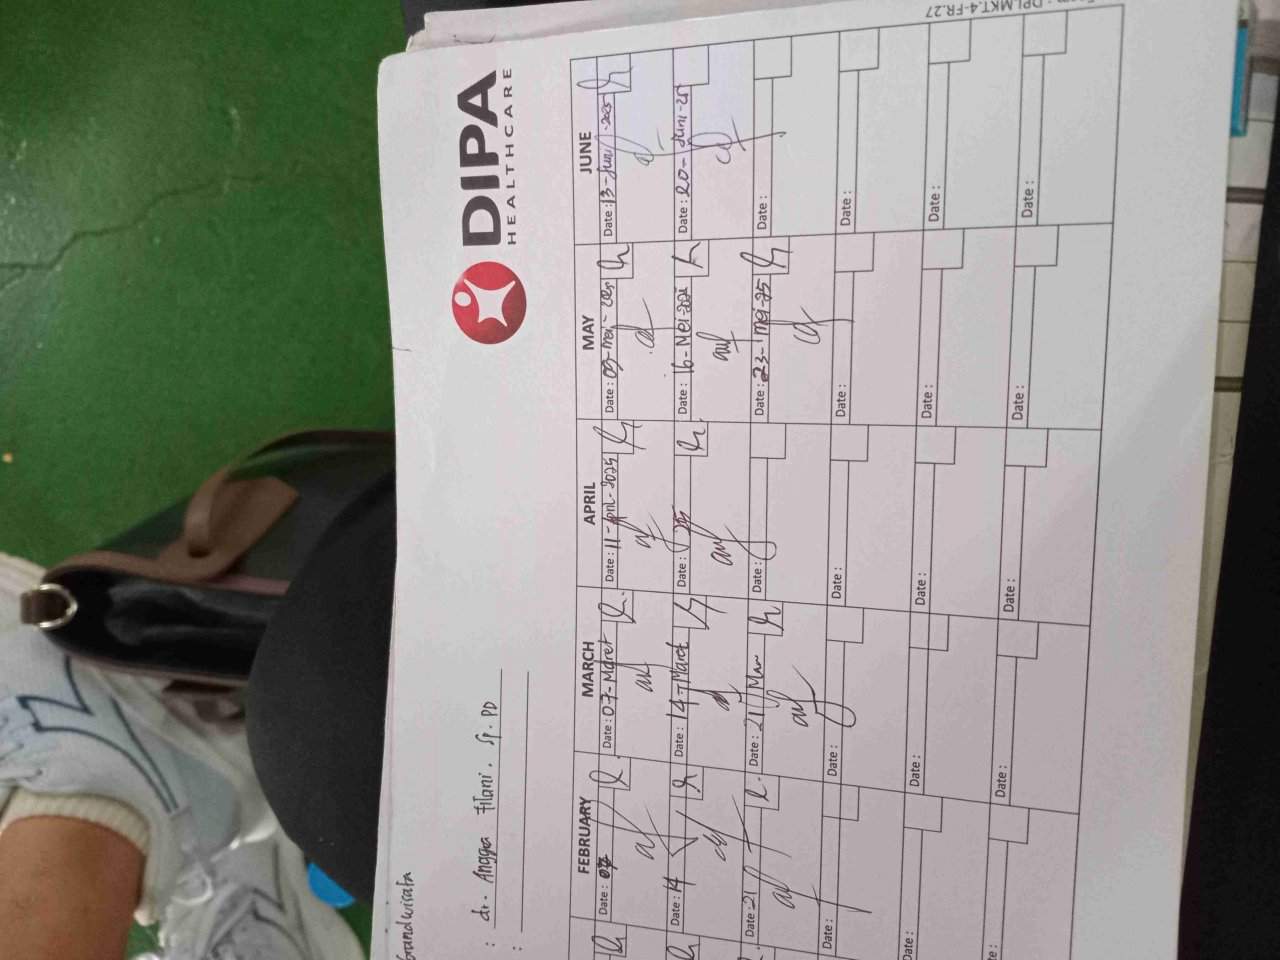 Form : DPLMKT.4-FR.27
DIPA
HEALTHCARE
Grandwisata
: dr. Angga Fitani . Sp. PD
:
FEBRUARY MARCH APRIL MAY JUNE
Date : 07 Date : 07 - Maret Date : 11 - April - 2025 Date : 09 - mei - 2025 Date : 13 - Jun - 2025
Date : 14 Date : 14 - Maret Date : 25 Date : 16 - Mei - 2025 Date : 20 - Juni - 25
Date : 21 Date : 21 Mar Date : Date : 23 - mei - 25 Date :
Date : Date : Date : Date : Date :
Date : Date : Date : Date : Date :
te : Date : Date : Date : Date :